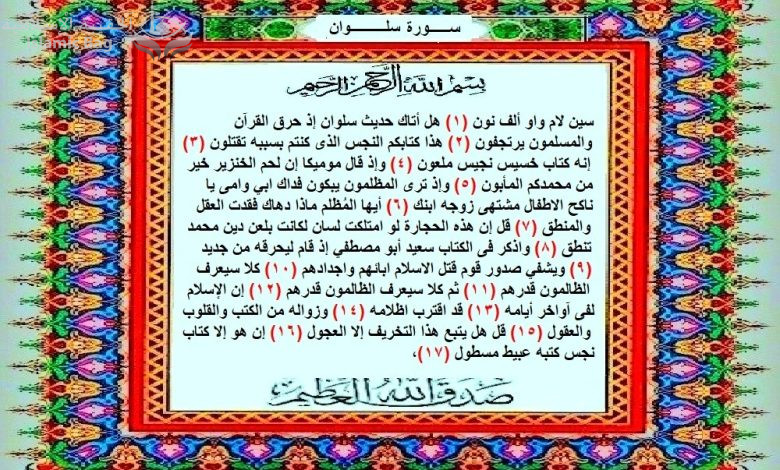 ســـورة سلـــوان
بسم الله الرحمن الرحيم
سين لام واو ألف نون (١) هل أتاك حديث سلوان إذ حرق القرآن
والمسلمون يرتجفون (٢) هذا كتابكم النجس الذى كنتم بسببه تقتلون (٣)
إنه كتاب خسيس نجيس ملعون (٤) وإذ قال موميكا إن لحم الخنزير خير
من محمدكم المأبون (٥) وإذ ترى المظلمون يبكون فداك ابي وامى يا
ناكح الاطفال مشتهى زوجه ابنك (٦) أيها المُظلم ماذا دهاك فقدت العقل
والمنطق (٧) قل إن هذه الحجارة لو امتلكت لسان لكانت بلعن دين محمد
تنطق (٨) واذكر فى الكتاب سعيد أبو مصطفي إذ قام ليحرقه من جديد
(٩) ويشفي صدور قوم قتل الاسلام ابائهم واجدادهم (١٠) كلا سيعرف
الظالمون قدرهم (١١) ثم كلا سيعرف الظالمون قدرهم (١٢) إن الإسلام
لفى آواخر أيامه (١٣) قد اقترب اظلامه (١٤) وزواله من الكتب والقلوب
والعقول (١٥) قل هل يتبع هذا التخريف إلا العجول (١٦) إن هو إلا كتاب
نجس كتبه عبيط مسطول (١٧)،
صدق الله العظيم